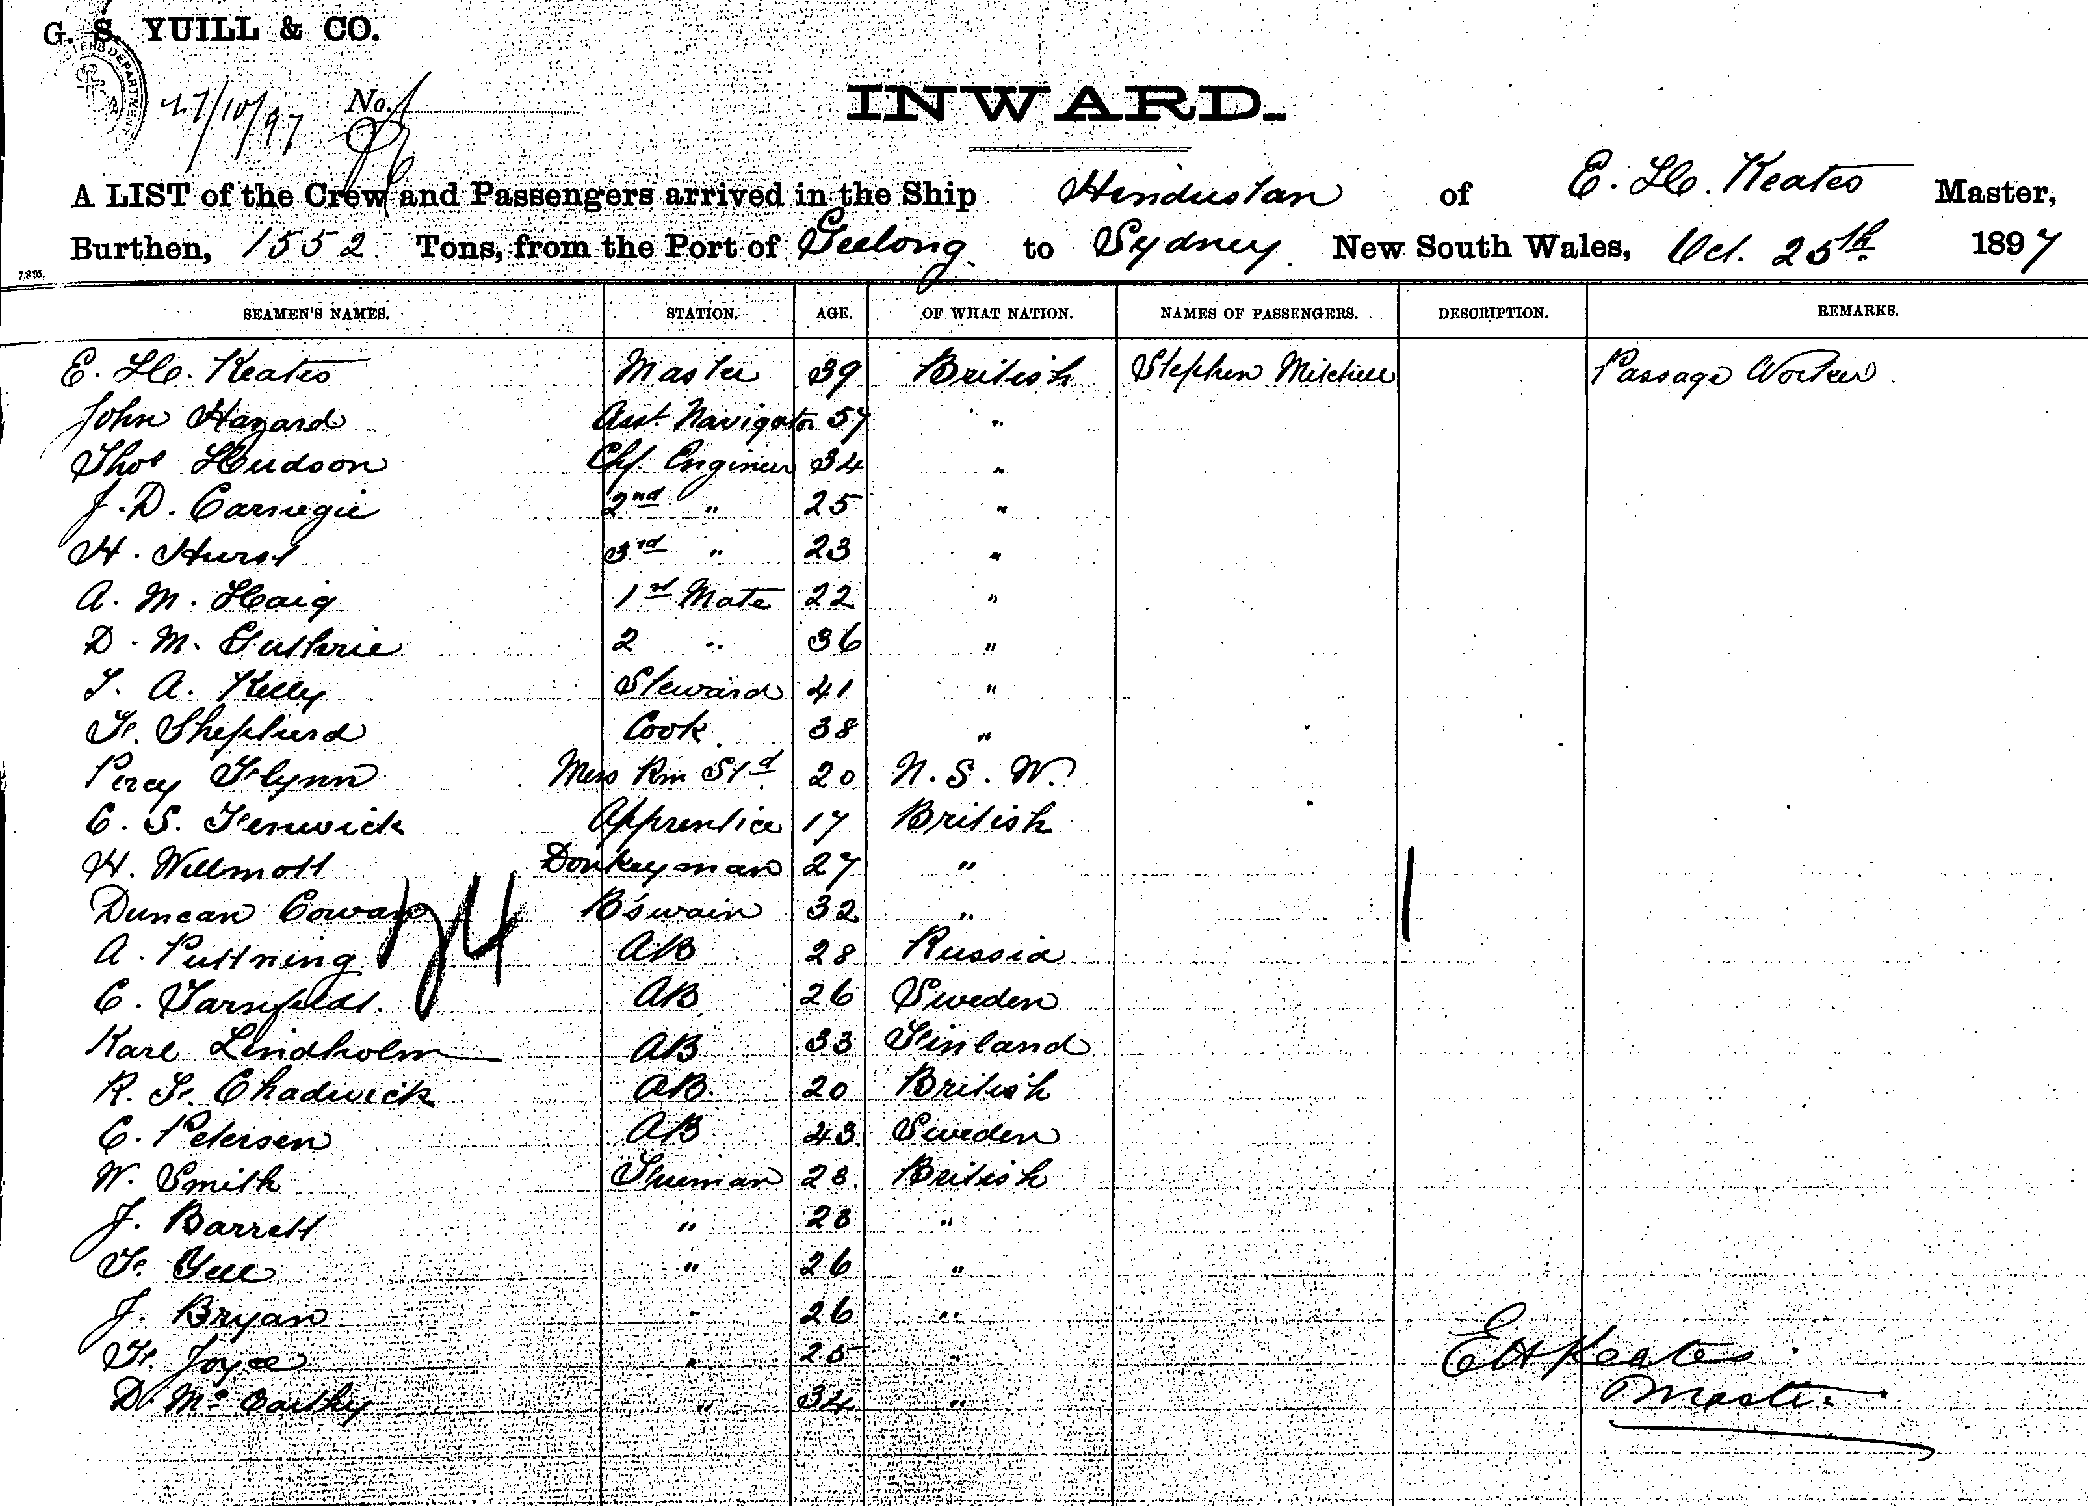 G. S. YUILL & CO.
27/10/97 No.
INWARD.
A LIST of the Crew and Passengers arrived in the Ship Hindustan of E. H. Keates Master,
Burthen, 1552 Tons, from the Port of Geelong to Sydney New South Wales, Oct. 25th 1897
SEAMEN'S NAMES. STATION. AGE. OF WHAT NATION. NAMES OF PASSENGERS. DESCRIPTION. REMARKS.
E. H. Keates Master 39 British Stephen Mitchell Passage Worker
John Hazard Asst. Navigator 57 "
Thos Hudson Chf. Engineer 34 "
J. D. Carnegie 2nd " 25 "
H. Hurst 3rd " 23 "
A. M. Haig 1st Mate 22 "
D. M. Guthrie 2 " 36 "
T. A. Kelly Steward 41 "
F. Shepherd Cook 38 "
Percy Flynn Mess Rm Std 20 N. S. W.
C. S. Fenwick Apprentice 17 British
H. Willmott Donkeyman 27 "
Duncan Cowan B'swain 32 "
A. Puttning AB 28 Russia
C. AB 26 Sweden
Karl Lindholm AB 33 Finland
R. F. Chadwick AB 20 British
C. Petersen AB 43 Sweden
W. Smith Fireman 28 British
J. Barrett " 28 "
F. " 26 "
J. Bryan " 26 "
F. Joyce " 25 "
D. McCarthy " 34 "
24
1
E H Keates
Master